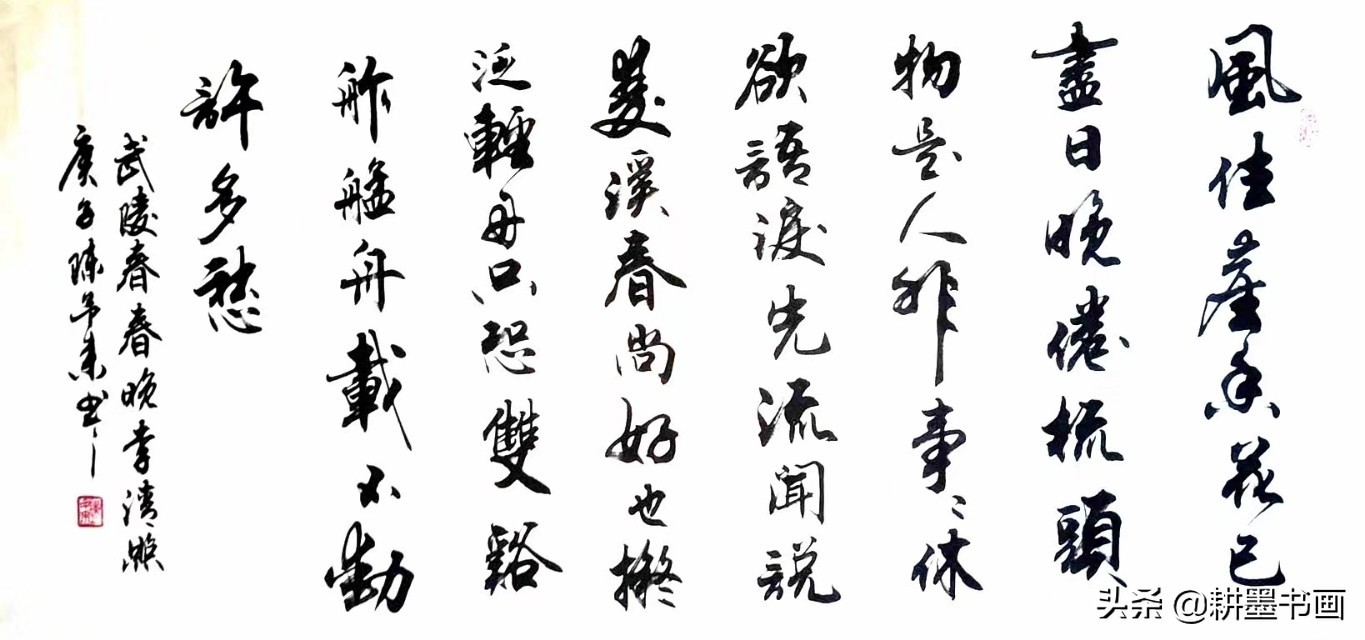 風住塵香花已
盡日晚倦梳頭
物是人非事〻休
欲語淚先流聞說
雙溪春尚好也擬
泛輕舟只恐雙谿
舴艋舟載不動
許多愁
武陵春春晚李清照
庚子陳書
头条 @耕墨书画